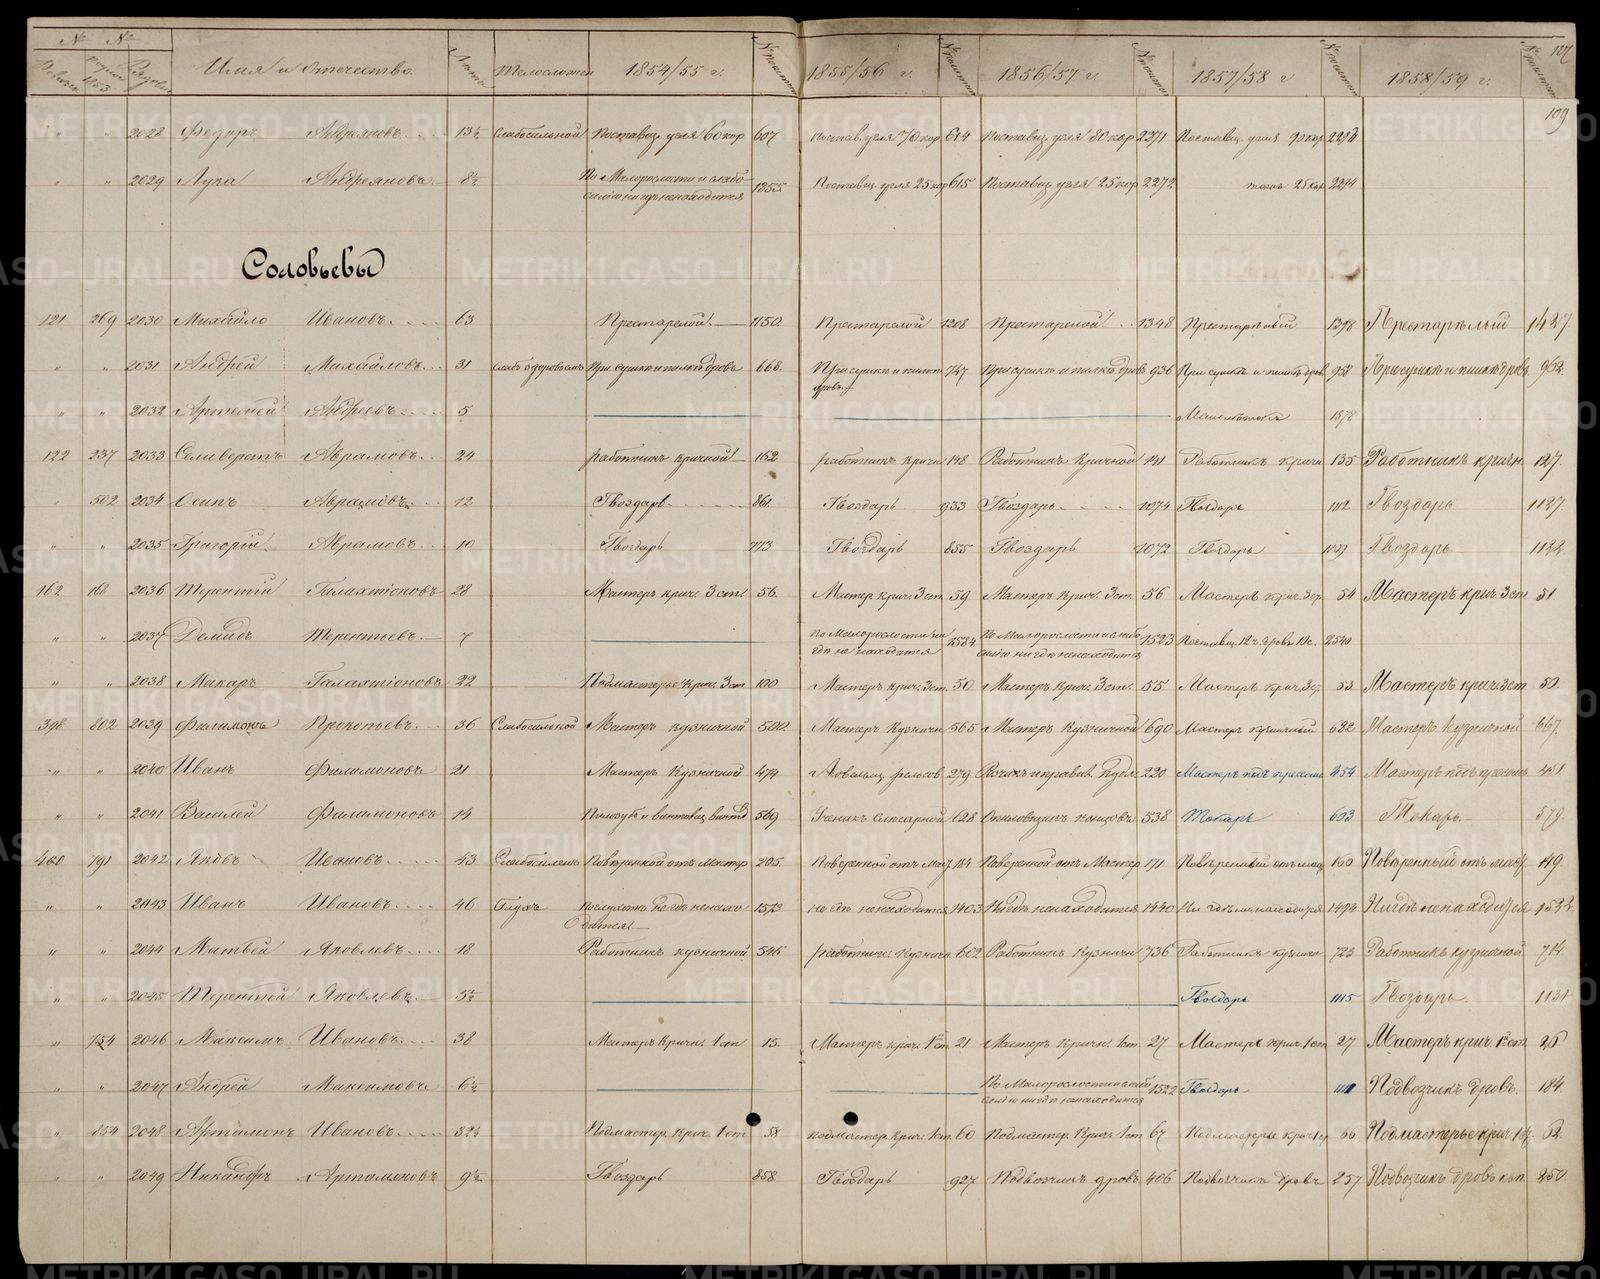 № № Имя и Отчество Лета Телосложен 1854/55 г. 1855/56 г. 1856/57 г. 1857/58 г 1858/59 г. 107
109
" " 2028 Федоръ Андреяновъ 13½ Слабосильной Поставщ. угля 60 кор 607 Постав. угля 70 кор 614 Поставщ. угля 80 кор 2271 Поставщ. угля 90 кор.
" " 2029 Лука Андреяновъ 8½ По Малорослости и слабо- 1355 Поставщ. угля 25 кор 615 Поставщ. угля 25 кор 2272 тожъ 25 кор. 2274
силію нигдѣ ненаходится
Соловьевы
121 269 2030 Михайло Ивановъ 63 Престарелой 1150 Престарелой 1208 Престарелой 1348 Престарѣлый 1398 Престарѣлый 1437
" " 2031 Андрей Михайловъ 31 слабъ здоровьемъ При сушкѣ и пилкѣ дровъ 668 При сушкѣ и пилкѣ 747 При сушкѣ и пилкѣ дровъ 936 При сушкѣ и пилкѣ дров 958 При сушкѣ и пилкѣ дровъ 962
дровъ
" " 2032 Артемей Андреевъ 5 Малолѣтокъ 1578
122 237 2033 Селиверстъ Аврамовъ 24 работникъ кричной 162 работникъ кричн 148 Работникъ Кричной 141 Работникъ кричн 135 Работникъ кричн. 127.
" 502 2034 Осипъ Аврамовъ 12 Гвоздарь 861 Гвоздарь 933 Гвоздарь 1074 Гвоздарь 1112 Гвоздарь 1127.
" " 2035 Григорій Аврамовъ 10 Гвоздарь 773 Гвоздарь 855 Гвоздарь 1072 Гвоздарь 1109 Гвоздарь 1122
162 168 2036 Терентій Галахтіоновъ 28 Мастеръ крич. 3 ст. 56. Мастер крич. 3 ст. 59 Мастеръ Крич. 3 ст. 56 Мастеръ крич. 3 ст. 54 Мастеръ крич. 3 ст 51.
" " 2037 Демидъ Терентьевъ 7 По Малорослости ни 1584 По Малорослости и слабо 1523 Поставщ. 12 ч. дровъ 2540
гдѣ не находится силію нигдѣ ненаходится
" " 2038 Макаръ Галахтіоновъ 22 Подмастерье Крич. 3 ст 100 Мастеръ крич. 3 ст. 50 Мастеръ Крич. 3 ст. 55 Мастеръ крич. 3 ст. 53 Мастеръ крич. 3 ст 50.
398 802 2039 Филимонъ Прокопьевъ 36 Слабосильной Мастеръ кузничной 500 Мастеръ Кузничн 565 Мастеръ Кузничной 690 Мастеръ кузничный 682 Мастеръ Кузничной 667.
" " 2040 Иванъ Филимоновъ 21 Мастеръ Кузничной 474 279 220 Мастеръ подъ прессомъ 454 Мастеръ подъ прессомъ 451
" " 2041 Василей Филимоновъ 14 569 Ученик Слесарной 628 538 Токарь 603 Токарь 579
400 791 2042 Яковъ Ивановъ 43 Слабосиленъ Повѣренной отъ Мастер 205 Поверенной отъ Маст 184 Поверенной отъ Мастер 171 Повѣренный отъ маст 160 Повѣренный отъ маст 149
" " 2043 Иванъ Ивановъ 46 Глухъ По глухотѣ нигдѣ ненахо- 1573 нигдѣ ненаходится 1403 Нигдѣ ненаходится 1440 Ни гдѣ не находится 1494 Нигдѣ ненаходится 1532
дится
" " 2044 Матвей Яковлевъ 18 Работникъ кузничной 545 работникъ Кузничн 602 Работникъ Кузничн 736 Работникъ кузнично 723 Работникъ кузничной 704
" " 2045 Терентей Яковлевъ 5½ Гвоздарь 1115 Гвоздарь 1131
" 754 2046 Максимъ Ивановъ 38 Мастеръ Кричн. 1 ст 15. Мастеръ крич. 1 ст 21 Мастеръ Кричн. 1 ст. 27 Мастеръ крич. 1 ст 27 Мастеръ крич. 1 ст 26
" " 2047 Андрей Максимовъ 6½ По Малорослости и слабо 1522 Гвоздарь 1111 Подвозчикъ дровъ. 184
силію нигдѣ ненаходится
" 854 2048 Артамонъ Ивановъ 32½ Подмастер. Крич. 1 ст 58 подмастер. Крич. 1 ст. 60 Подмастер. Крич. 1 ст 67 Подмастерье крич 1 ст 66 Подмастерье крич 1 ст. 62.
" " 2049 Никандръ Артамоновъ 9½ Гвоздарь 858 Гвоздарь 927 Подвозчикъ дровъ 406 Подвозчикъ дровъ 257 Подвозчикъ дровъ 250
METRIKI.GASO-URAL.RU